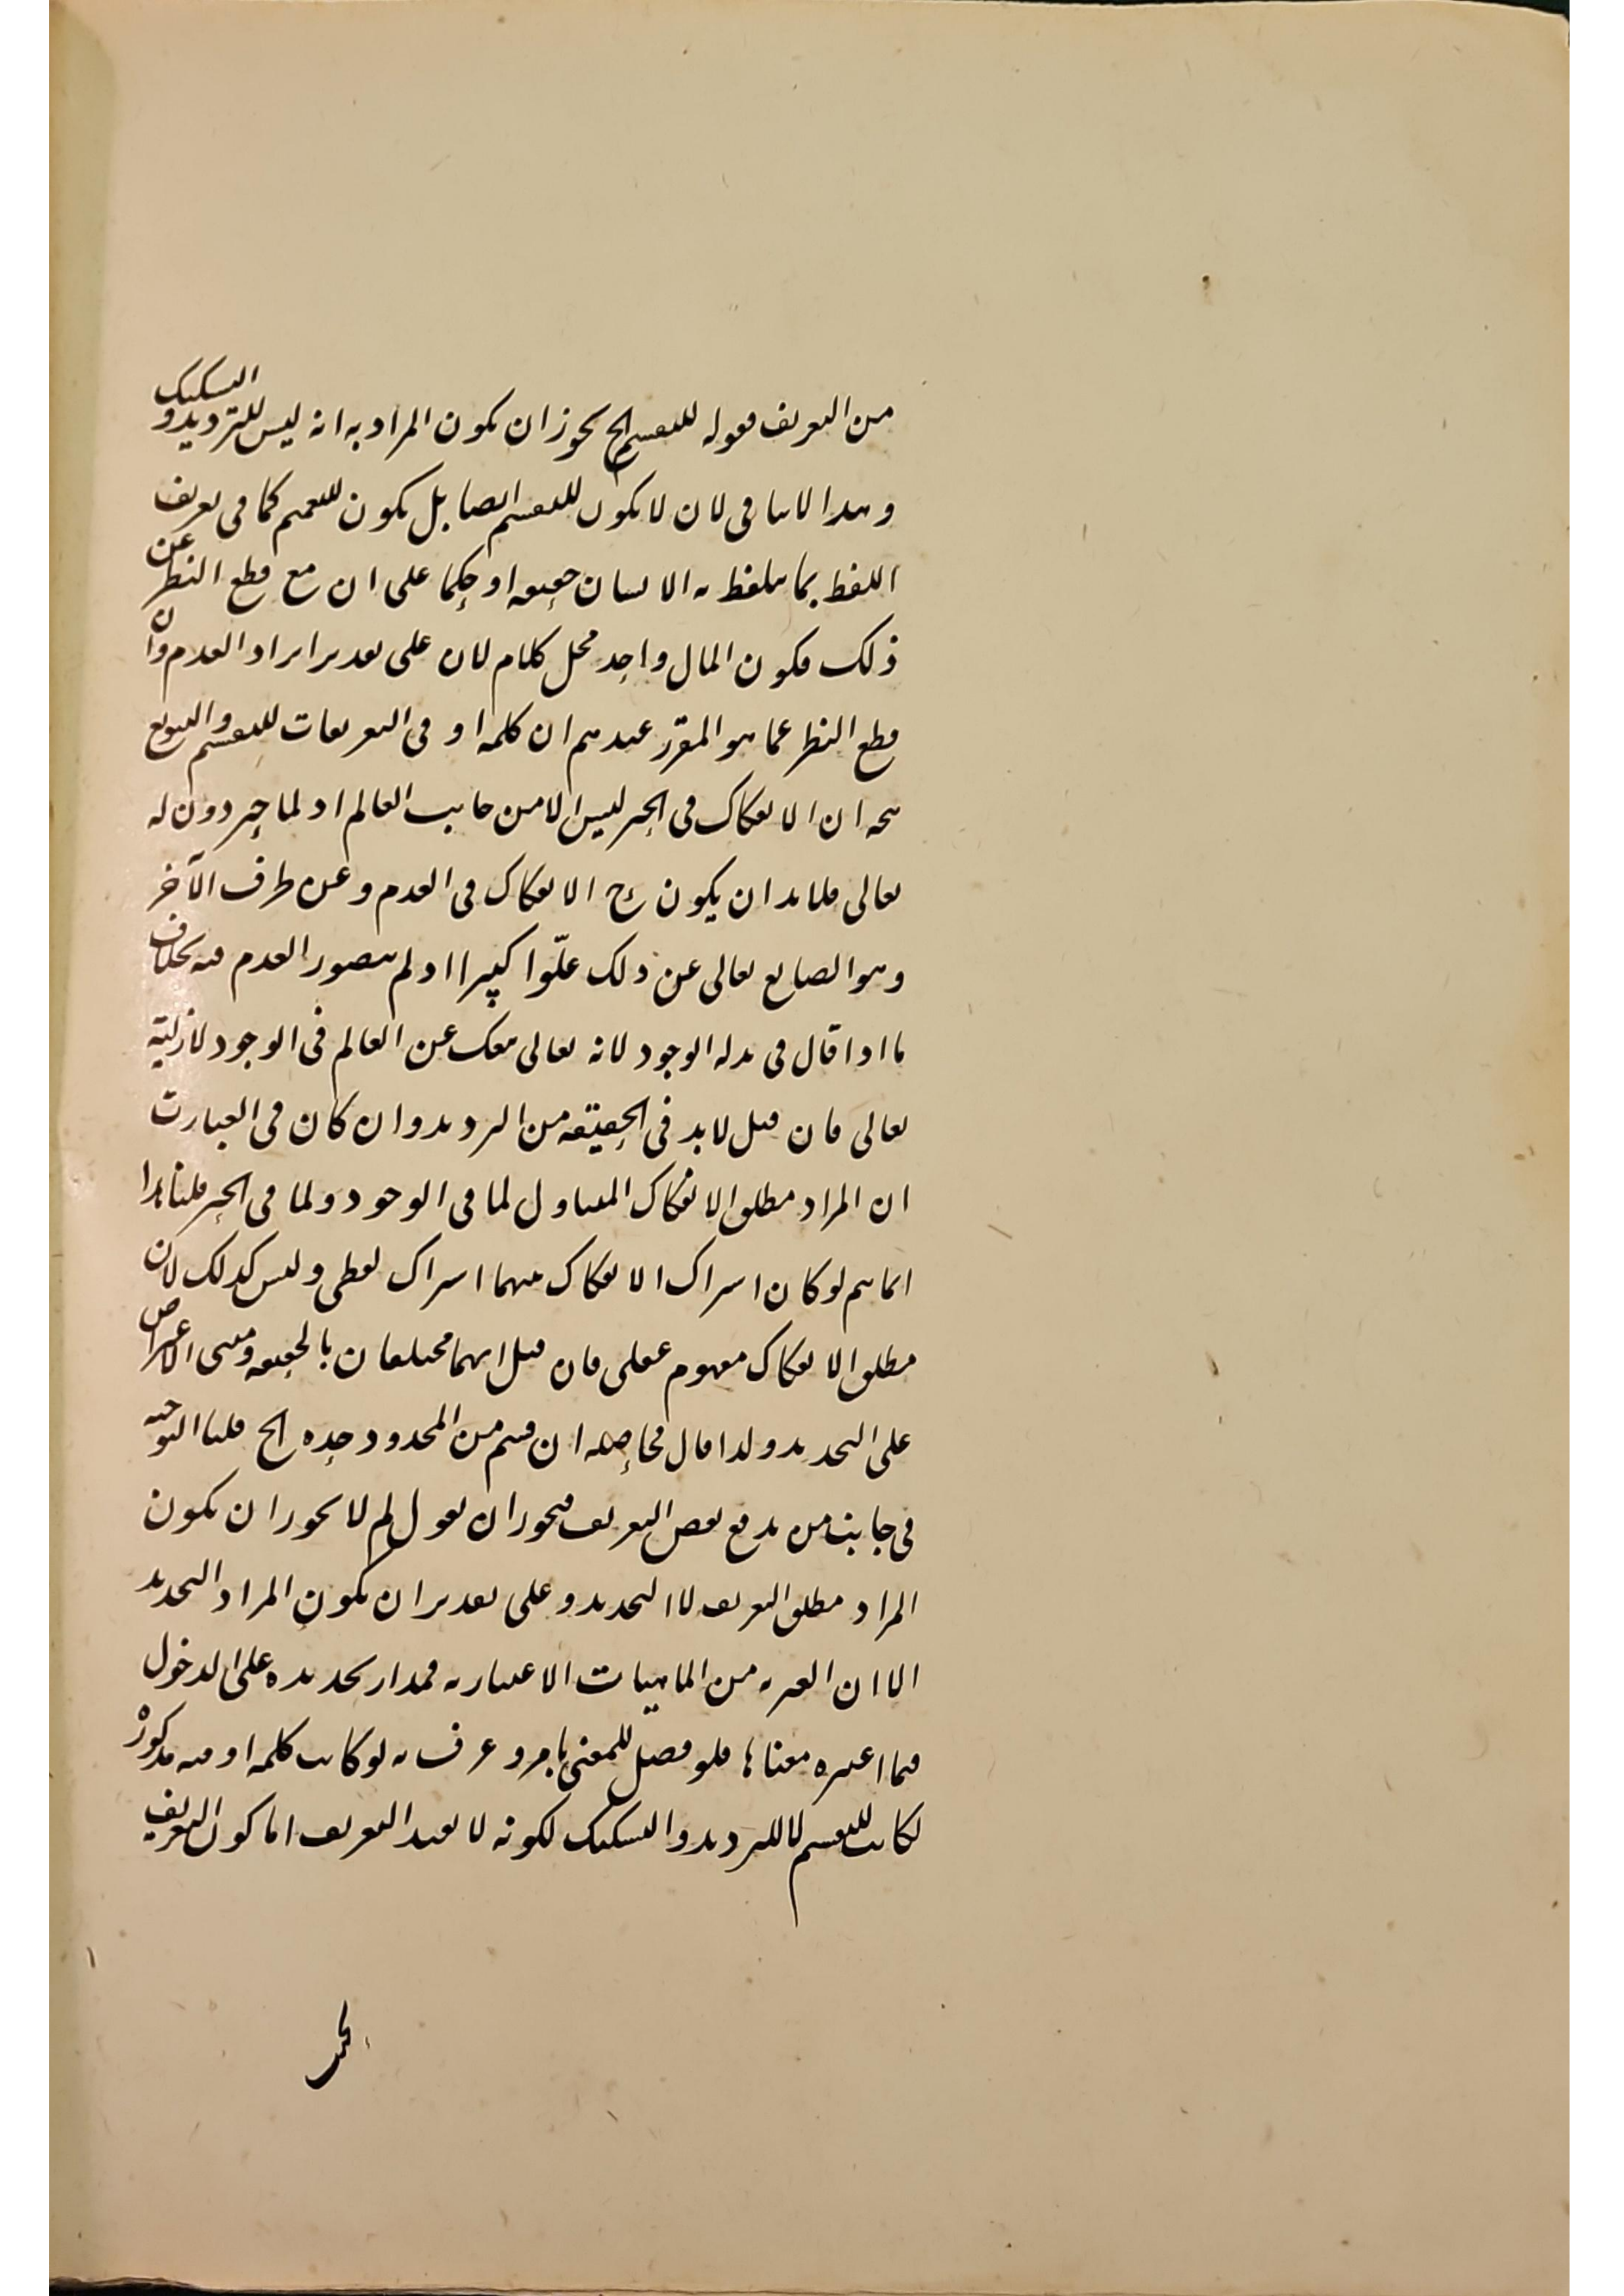 من التعريف فقوله للتقسيم الخ يجوز ان يكون المراد به انه ليس للترديد والتشكيك
وهذا لا ينافي لان لا يكون للتقسيم ايضا بل يكون للتعميم كما في تعريف
اللفظ بما يتلفظ به الانسان حقيقة او حكما على ان مع قطع النظر عن
ذلك فكون المال واحد محل كلام لان على تقدير ايراد العدم وان
قطع النظر عما هو المقرر عندهم ان كلمة او في التعريفات للتقسيم والتنويع
يتجه ان الانفكاك في الحيز ليس الا من جانب العالم اذ لما حيز دون له
تعالى فلا بد ان يكون ح الانفكاك في العدم وعن طرف الآخر
وهو الصانع تعالى عن ذلك علّوا كبيرا اذ لم يتصور العدم فيه بخلاف
ما اذا قال في بدله الوجود لانه تعالى منفك عن العالم في الوجود لازليته
تعالى فان قيل لا بد في الحقيقة من الترديد وان كان في العبارت
ان المراد مطلق الانفكاك المتناول لما في الوجود ولما في الحيز قلنا هذا
انما يتم لو كان اشتراك الانفكاك بينهما اشتراك لفظي وليس كذلك لان
مطلق الانفكاك مفهوم عقلي فان قيل انهما مختلفان بالحقيقة ومبنى الاعتراض
على التحديد ولذا قال فحاصله ان قسم من المحدود حده الخ قلنا التوجيه
في جانب من يدفع نقض التعريف فيجوز ان يقول لم لا يجوز ان يكون
المراد مطلق التعريف لا التحديد وعلى تقدير ان يكون المراد التحديد
الا ان الغيرية من الماهيات الاعتبارية فمدار تحديده على الدخول
فيما اعتبره معناها فلو فصل للمعنى بامر وعرف به لو كانت كلمة او فيه مذكورْ
لكانت للتقسيم لا للترديد والتشكيك لكونه لا يفيد التعريف اما كون التعريف